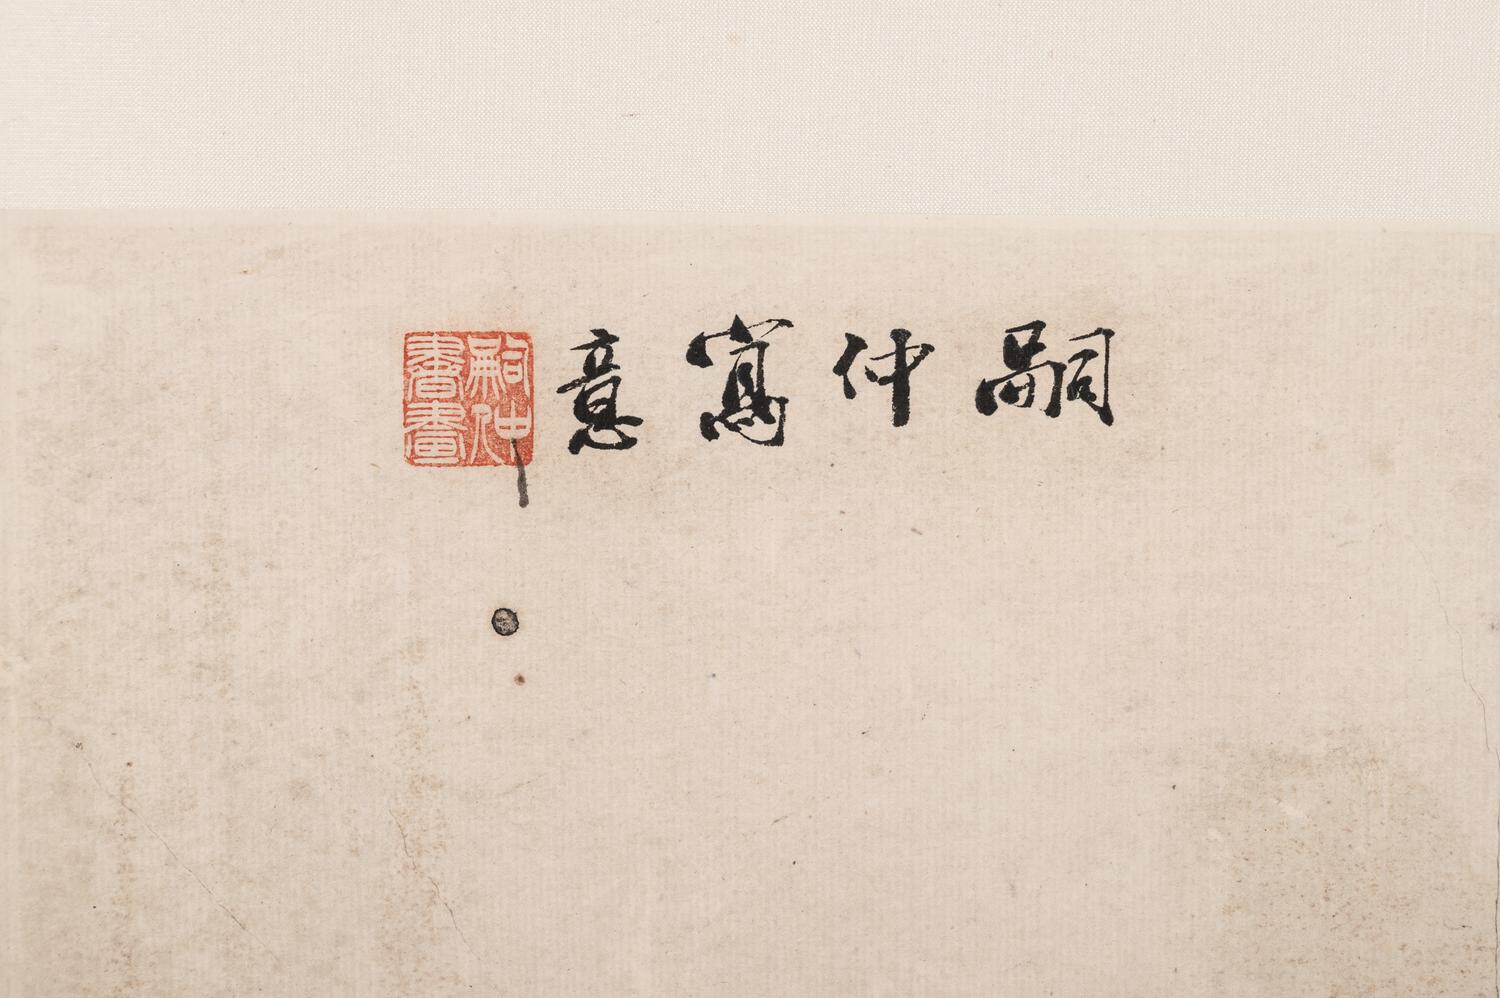 嗣仲寫意
嗣仲
書畫